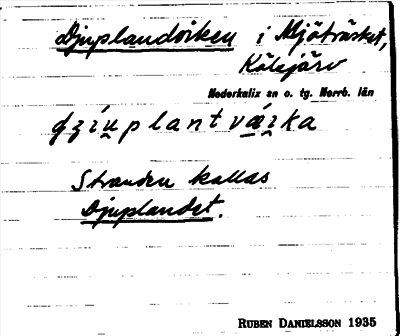 Djuplandviken i Mjöträsket,
Kälsjärv
Nederkalix sn o. tg. Norrb. län
Stranden kallas
Djuplandet.
RUBEN DANIELSSON 1935